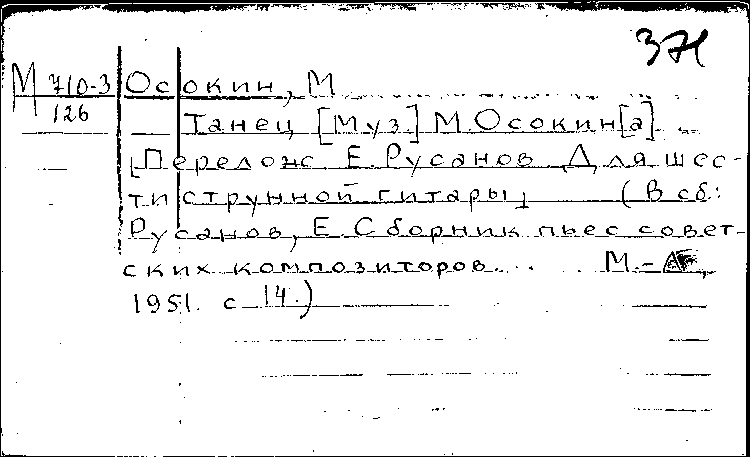 371
М 710-3 Осокин, М
126
Танец [Муз.] М. Осокин[а].
[Перелож. Е. Русанов. Для шес-
тиструнной гитары] (В сб.:
Русанов, Е. Сборник пьес совет-
ских композиторов... М.-
1951. с 14.)